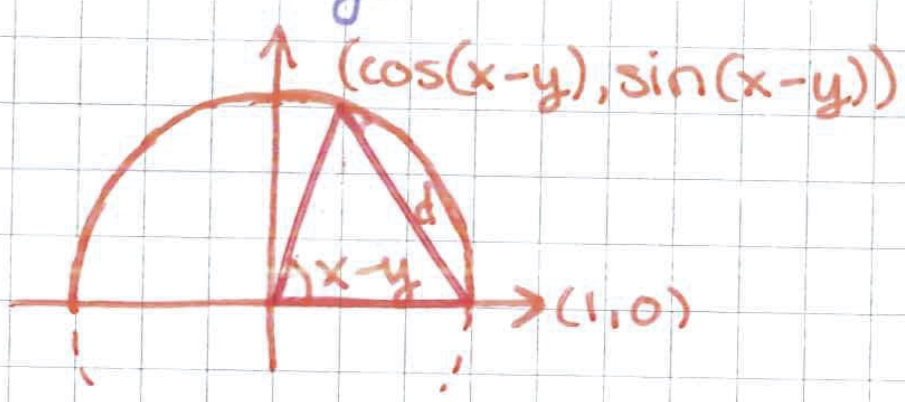 (cos(x-y), sin(x-y))
d
x-y
(1,0)